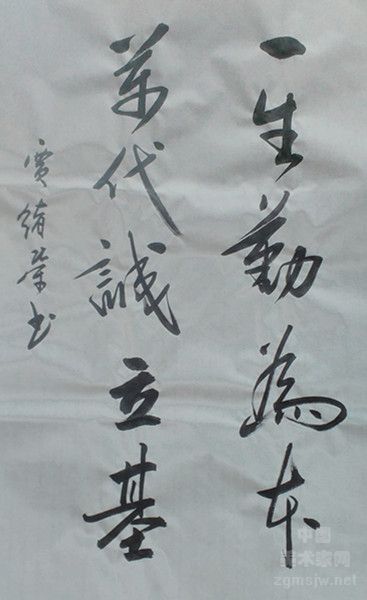 一生勤為本
萬代誠立基
贾绪荣书
中国
美术家网
zgmsjw.net